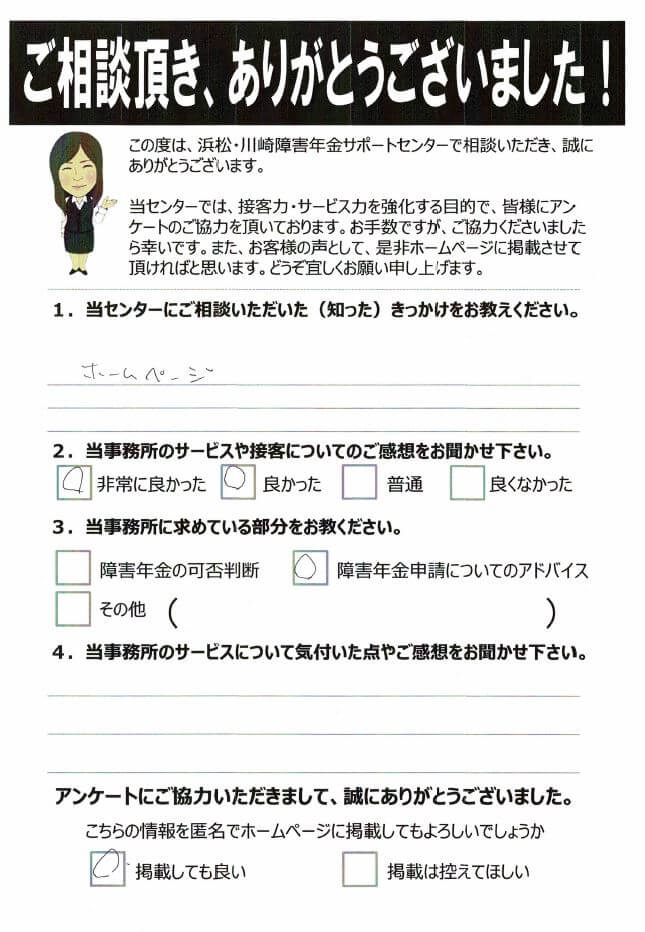 ご相談頂き、ありがとうございました！
この度は、浜松・川崎障害年金サポートセンターで相談いただき、誠に
ありがとうございます。
当センターでは、接客力・サービス力を強化する目的で、皆様にアン
ケートのご協力を頂いております。お手数ですが、ご協力くださいました
ら幸いです。また、お客様の声として、是非ホームページに掲載させて
頂ければと思います。どうぞ宜しくお願い申し上げます。
１．当センターにご相談いただいた（知った）きっかけをお教えください。
ホームページ
２．当事務所のサービスや接客についてのご感想をお聞かせ下さい。
非常に良かった 良かった 普通 良くなかった
３．当事務所に求めている部分をお教ください。
障害年金の可否判断 障害年金申請についてのアドバイス
その他 （ ）
４．当事務所のサービスについて気付いた点やご感想をお聞かせ下さい。
アンケートにご協力いただきまして、誠にありがとうございました。
こちらの情報を匿名でホームページに掲載してもよろしいでしょうか
掲載しても良い 掲載は控えてほしい